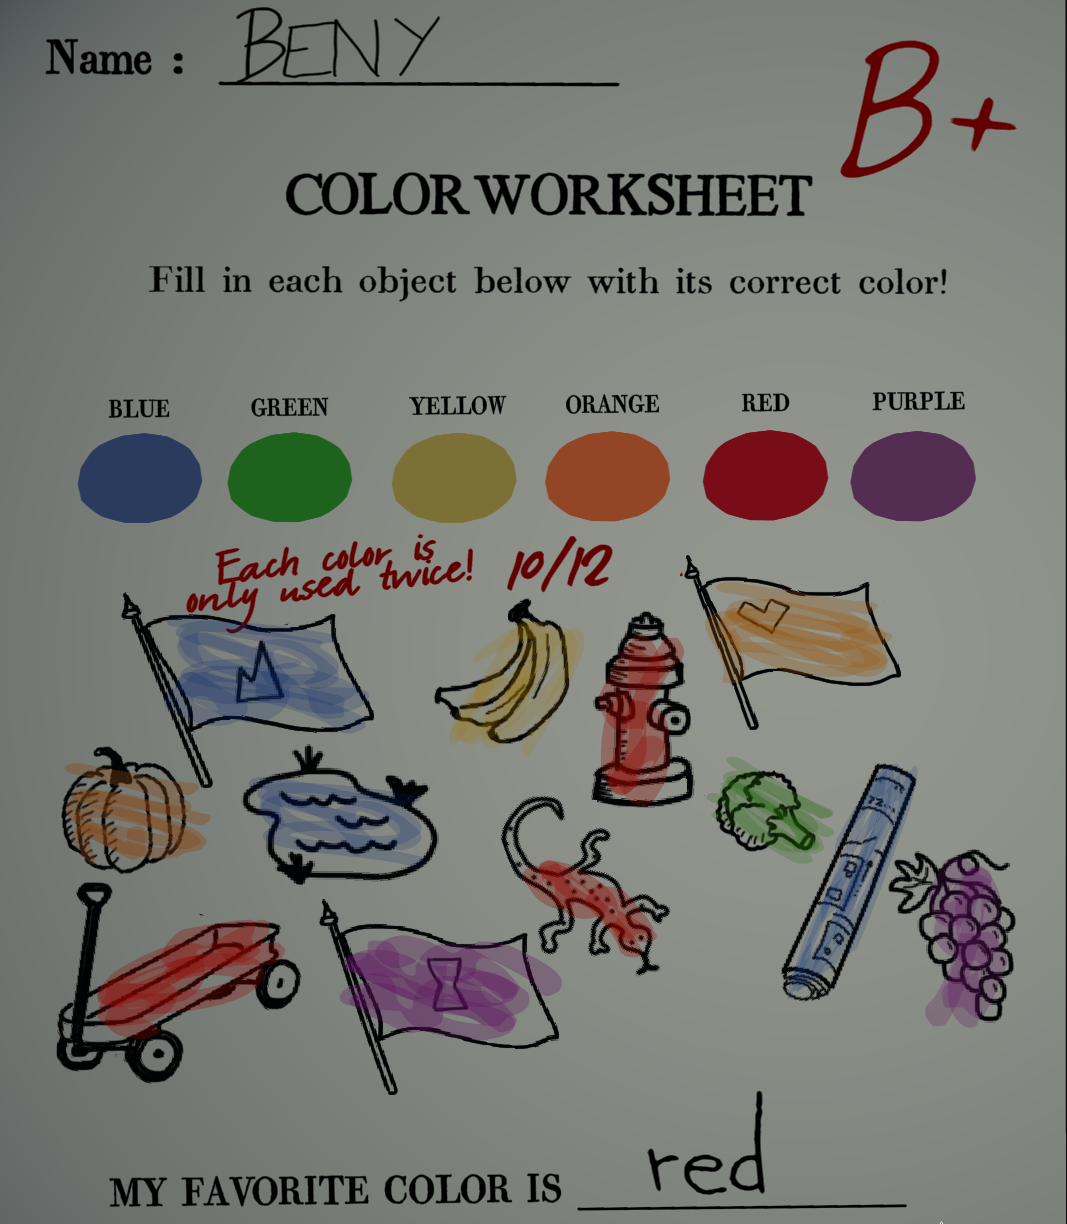 Name : BENY
B+
COLOR WORKSHEET
Fill in each object below with its correct color!
BLUE GREEN YELLOW ORANGE RED PURPLE
Each color is
only used twice! 10/12
72...
MY FAVORITE COLOR IS red